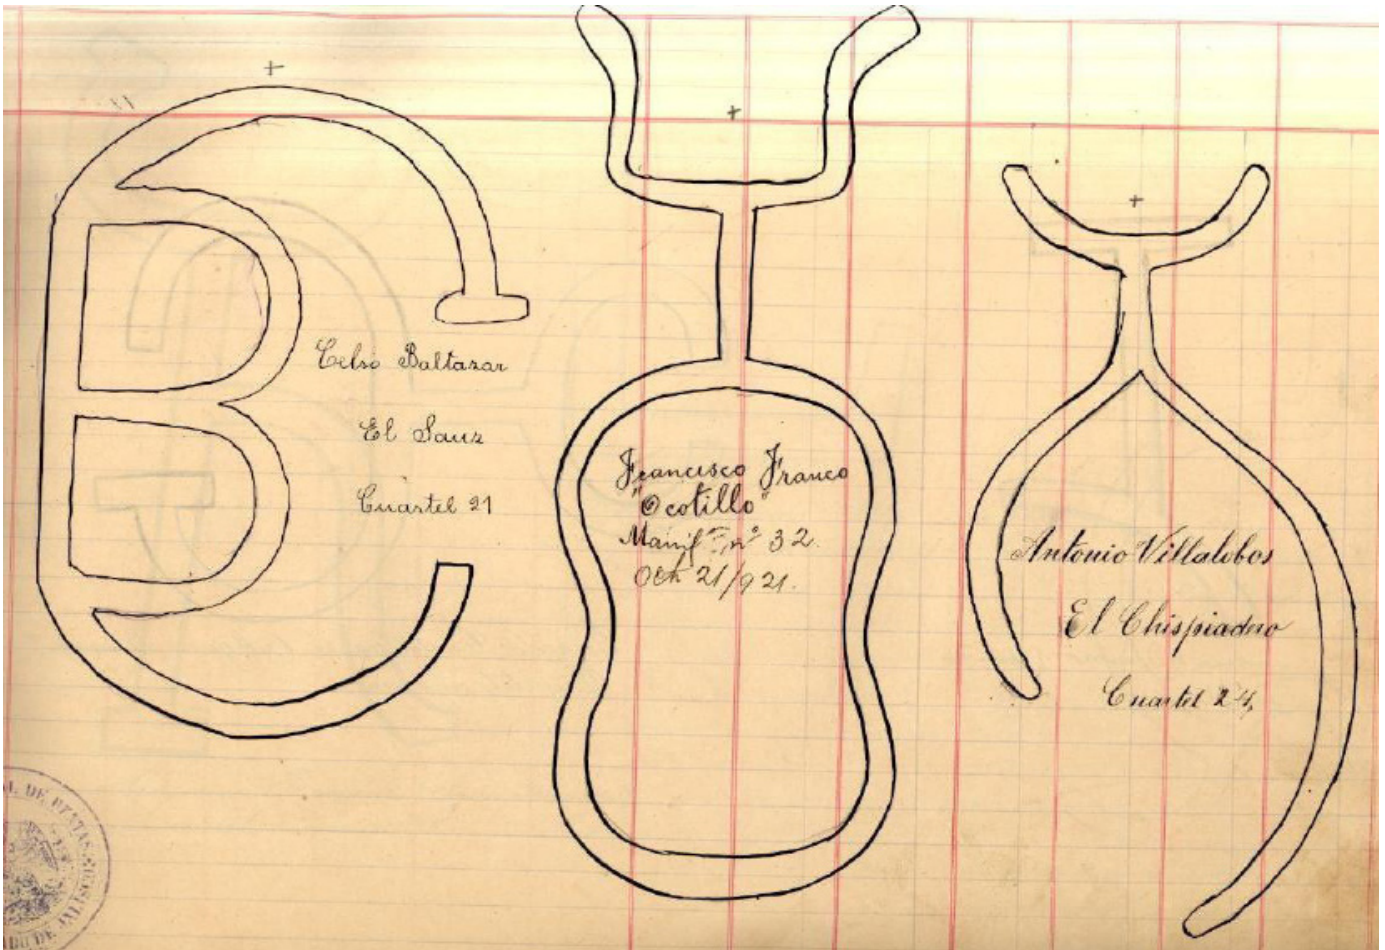 Celso Baltazar
El Sauz
Cuartel 21
Francisco Franco
"Ocotillo"
Manif nº 32.
Oct 21/921.
Antonio Villalobos
El Chispiadero
Cuartel 24,
DE RENTAS
JALISCO